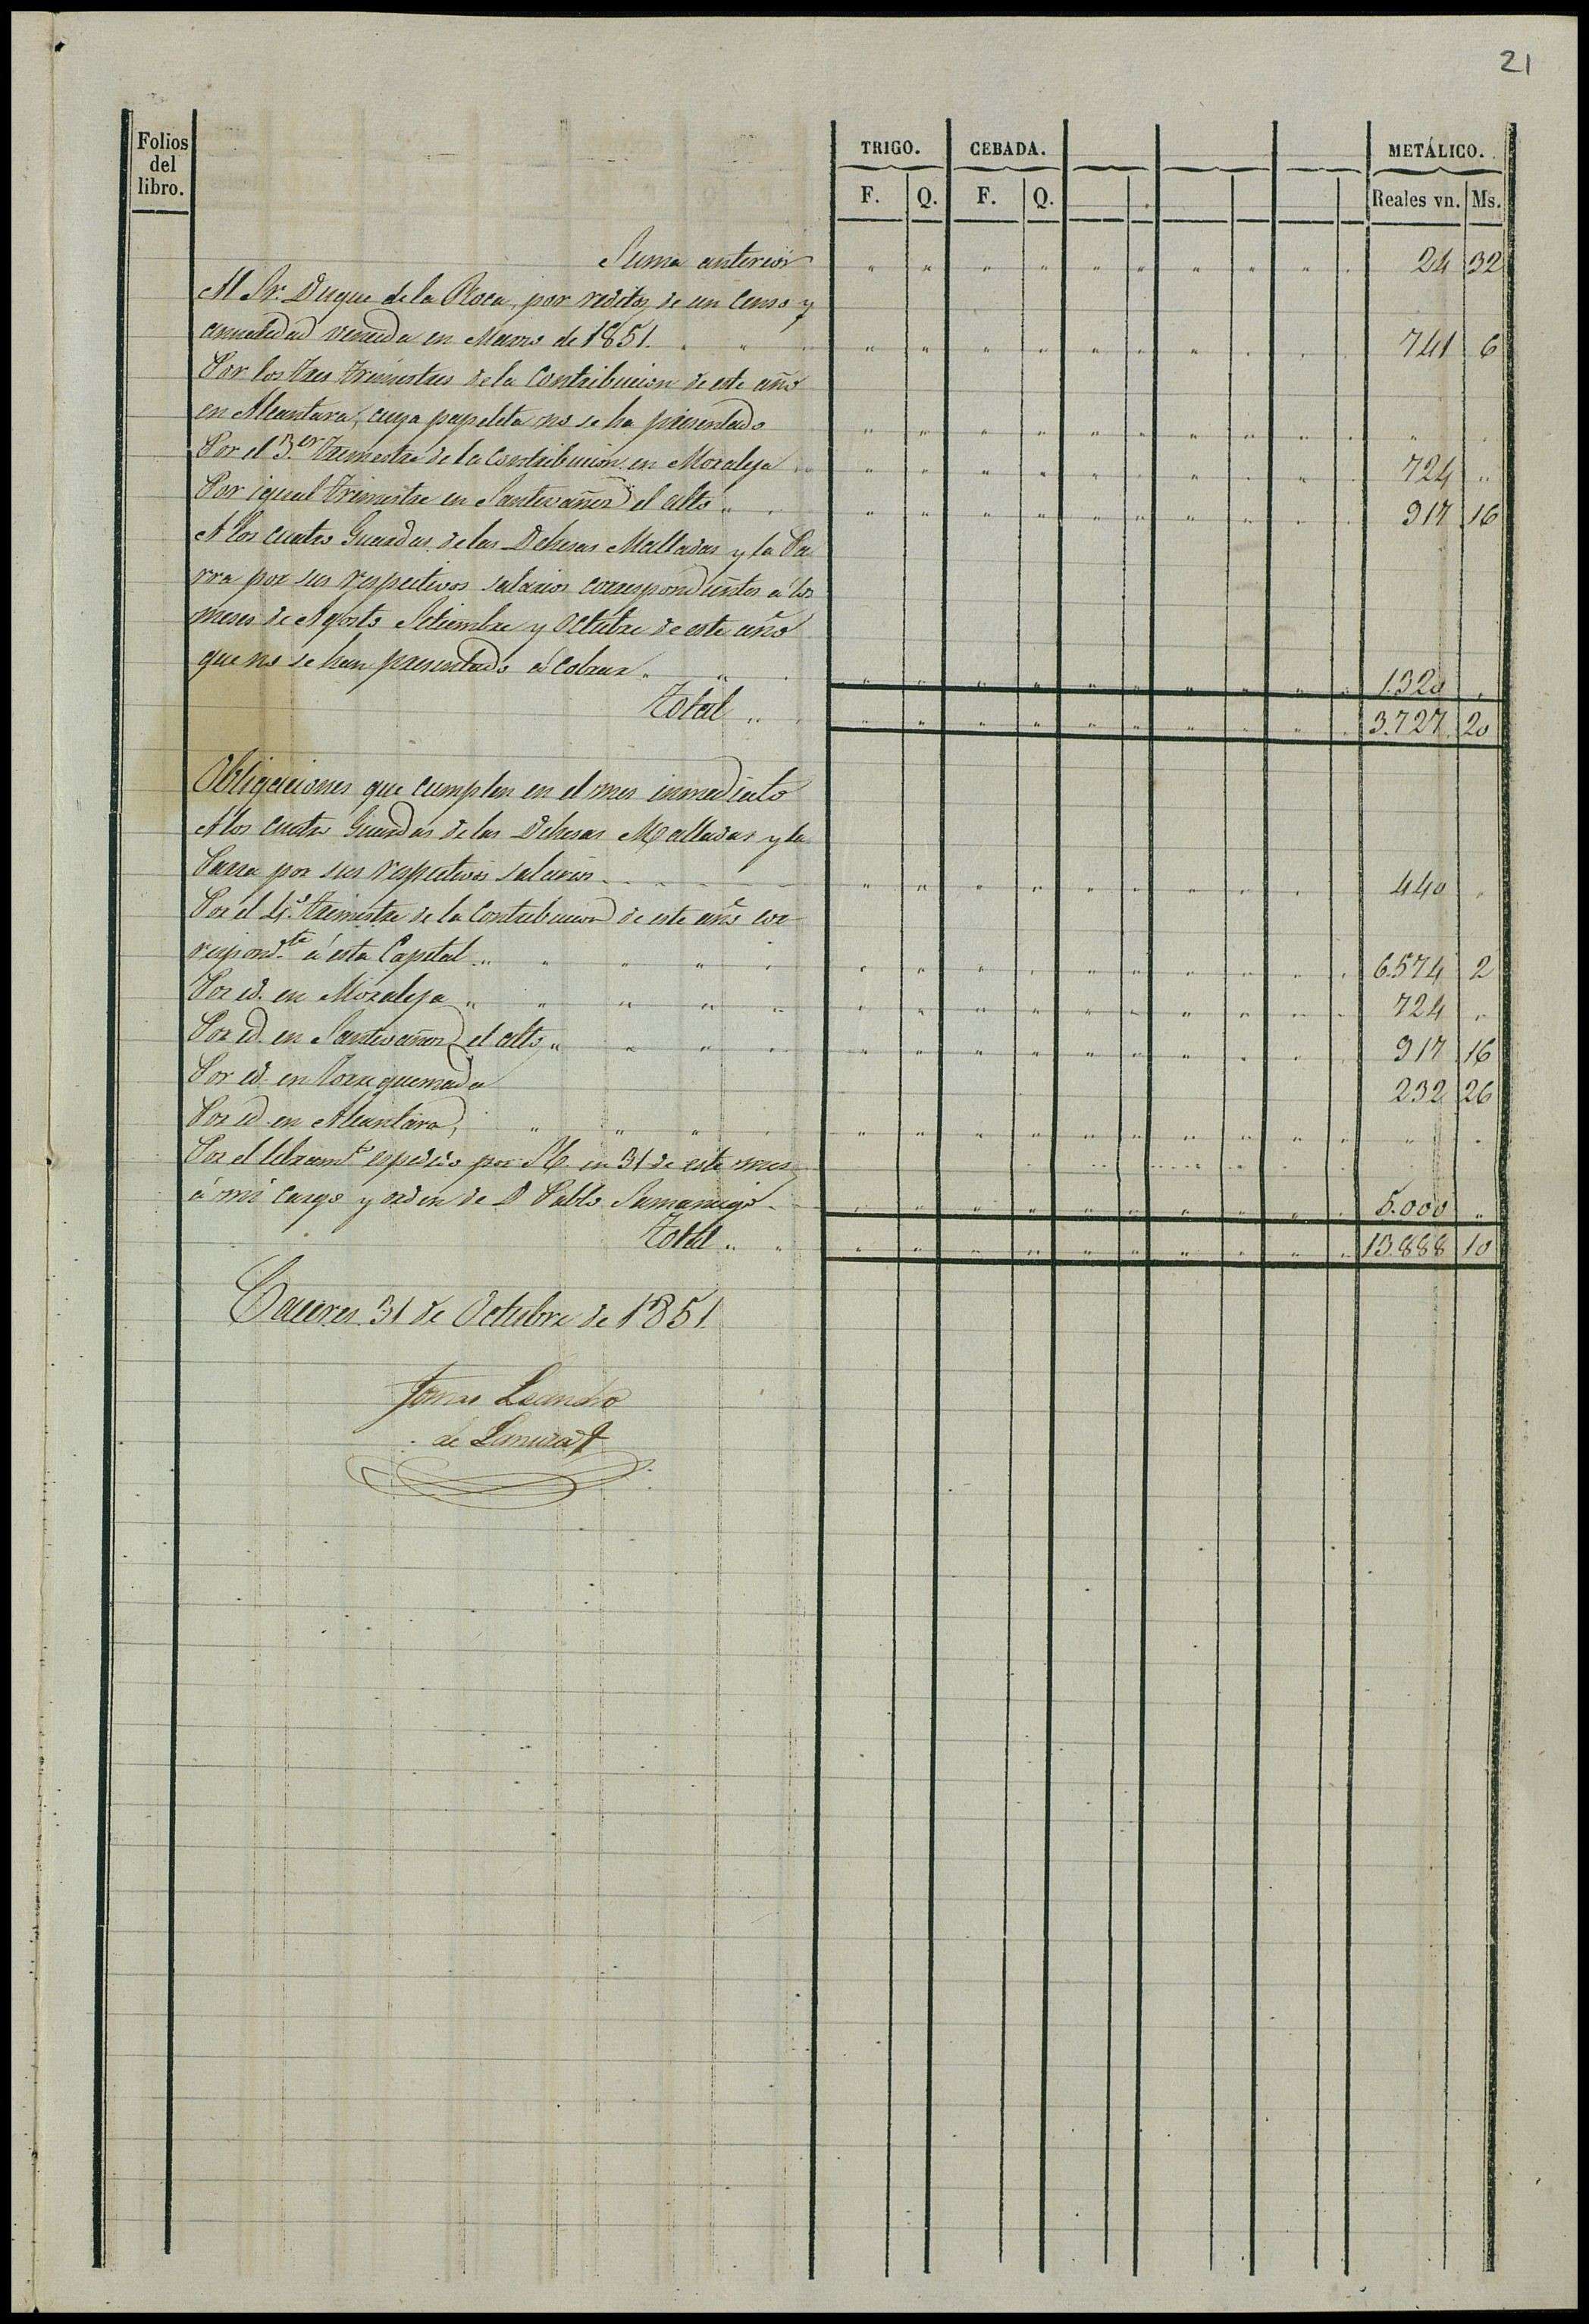 21
Folios del libro.
TRIGO. CEBADA. METÁLICO.
F. Q. F. Q. Reales vn. Ms.
Suma anterior " " " " " " " " " " 24 32
Al Sr. Duque de la Roca, por reditos de un censo y
anualidad vencida en Marzo de 1851. " " " " " " " " " " 741 6
Por los tres trimestres de la Contribucion de este año
en Alcantara, cuya papeleta no se ha presentado " " " " " " " " " " " "
Por el 3.er trimestre de la contribucion en Moraleja " " " " " " " " " " 724 "
Por igual trimestre en Santivañez el alto " " " " " " " " " " 917 16
A los cuatro Guardas de las Dehesas Malladas y la Pa
rra por sus respectivos salarios correspondientes á los
meses de Agosto Setiembre y Octubre de este año
que no se han presentado á cobrar " " " " " " " " " " 1.320 "
Total " " " " " " " " " " 3.727 20
Obligaciones que cumplen en el mes inmediato
A los cuatro Guardas de las Dehesas Malladas y la
Parra por sus respectivos salarios " " " " " " " " " 440 "
Por el 4.º trimestre de la Contribucion de este año cor
respond.te á esta Capital " " " " " " " " " " 6.574 2
Por id. en Moraleja " " " " " " " " " " 724 "
Por id. en Santivañez el alto " " " " " " " " " " 917 16
Por id. en Torrequemada 232 26
Por id. en Alcantara, " " " " " " " " " " " "
Por el libram.to espedido por V. en 31 de este mes
á mi cargo y orden de D Pablo Samaniego " " " " " " " " " " 5.000 "
Total " " " " " " " " " " 13.888 10
Caceres 31 de Octubre de 1851.
Tomas Leandro
de